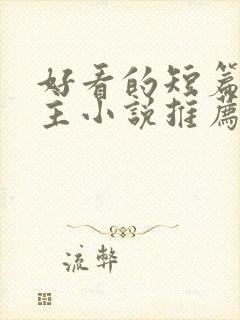 好看的短篇
主小說推薦
流弊